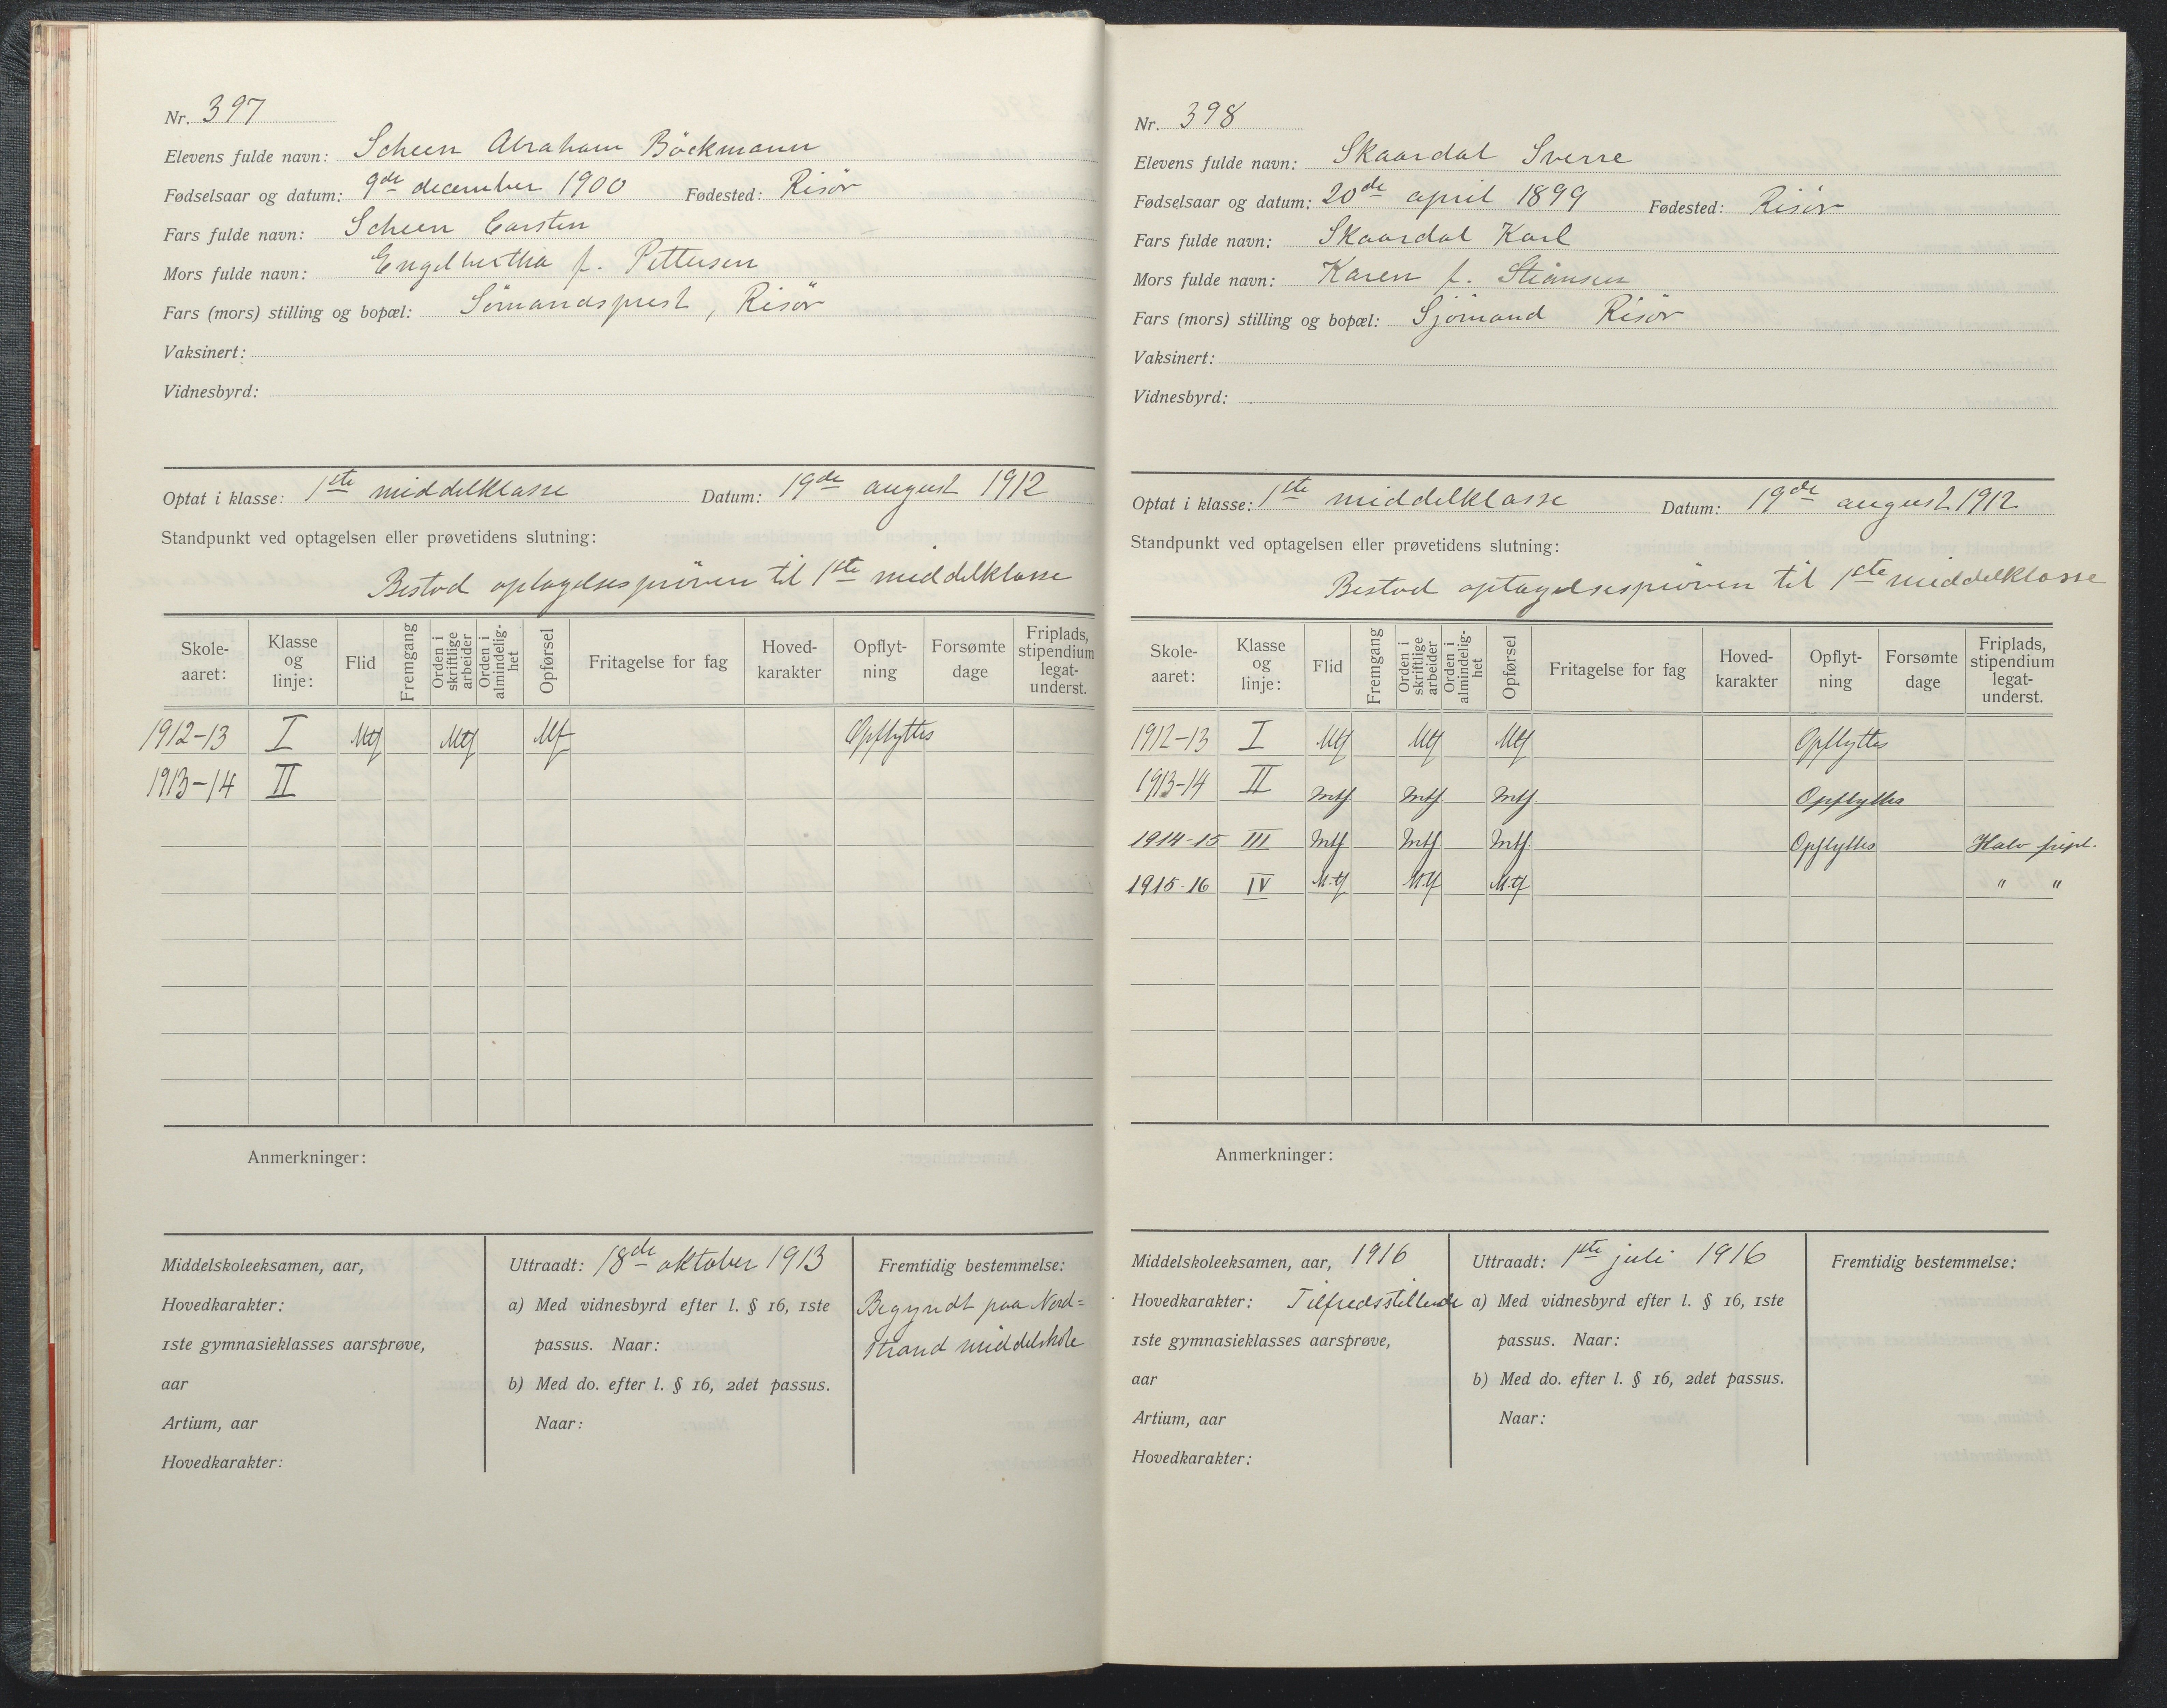 Nr. 397
Elevens fulde navn: Scheen Abraham Böckmann
Fødselsaar og datum: 9de december 1900 Fødested: Risör
Fars fulde navn: Scheen Carsten
Mors fulde navn: Engelbertha f. Pettersen
Fars (mors) stilling og bopæl: Sömandsprest, Risör
Vaksinert:
Vidnesbyrd:
Optat i klasse: 1ste middelklasse Datum: 19de august 1912
Standpunkt ved optagelsen eller prøvetidens slutning:
Bestod optagelsespröven til 1ste middelklasse
Skole-aaret: Klasse og linje: Flid Fremgang Orden i skriftlige arbeider Orden i almindelig-het Opførsel Fritagelse for fag Hoved-karakter Opflyt-ning Forsømte dage Friplads, stipendium legat-underst.
1912-13 I Mtf Mtf Mf Opflyttes
1913-14 II
Anmerkninger:
Middelskoleeksamen, aar,
Hovedkarakter:
1ste gymnasieklasses aarsprøve,
aar
Artium, aar
Hovedkarakter:
Uttraadt: 18de oktober 1913
a) Med vidnesbyrd efter l. § 16, 1ste
passus. Naar:
b) Med do. efter l. § 16, 2det passus.
Naar:
Fremtidig bestemmelse:
Begyndt paa Nord=
strand middelskole
Nr. 398
Elevens fulde navn: Skaardal Sverre
Fødselsaar og datum: 20de april 1899 Fødested: Risör
Fars fulde navn: Skaardal Karl
Mors fulde navn: Karen f.
Fars (mors) stilling og bopæl: Sjömand Risör
Vaksinert:
Vidnesbyrd:
Optat i klasse: 1ste middelklasse Datum: 19de august 1912
Standpunkt ved optagelsen eller prøvetidens slutning:
Bestod optagelsespröven til 1ste middelklasse
Skole-aaret: Klasse og linje: Flid Fremgang Orden i skriftlige arbeider Orden i almindelig-het Opførsel Fritagelse for fag Hoved-karakter Opflyt-ning Forsømte dage Friplads, stipendium legat-underst.
1912-13 I Mtf Mtf Mtf Opflyttes
1913-14 II Mtf Mtf Mtf Opflyttes
1914-15 III Mtf Mtf Mtf Opflyttes Halv fripl.
1915-16 IV Mtf Mtf Mtf " "
Anmerkninger:
Middelskoleeksamen, aar, 1916
Hovedkarakter: Tilfredsstillende
1ste gymnasieklasses aarsprøve,
aar
Artium, aar
Hovedkarakter:
Uttraadt: 1ste juli 1916
a) Med vidnesbyrd efter l. § 16, 1ste
passus. Naar:
b) Med do. efter l. § 16, 2det passus.
Naar:
Fremtidig bestemmelse: